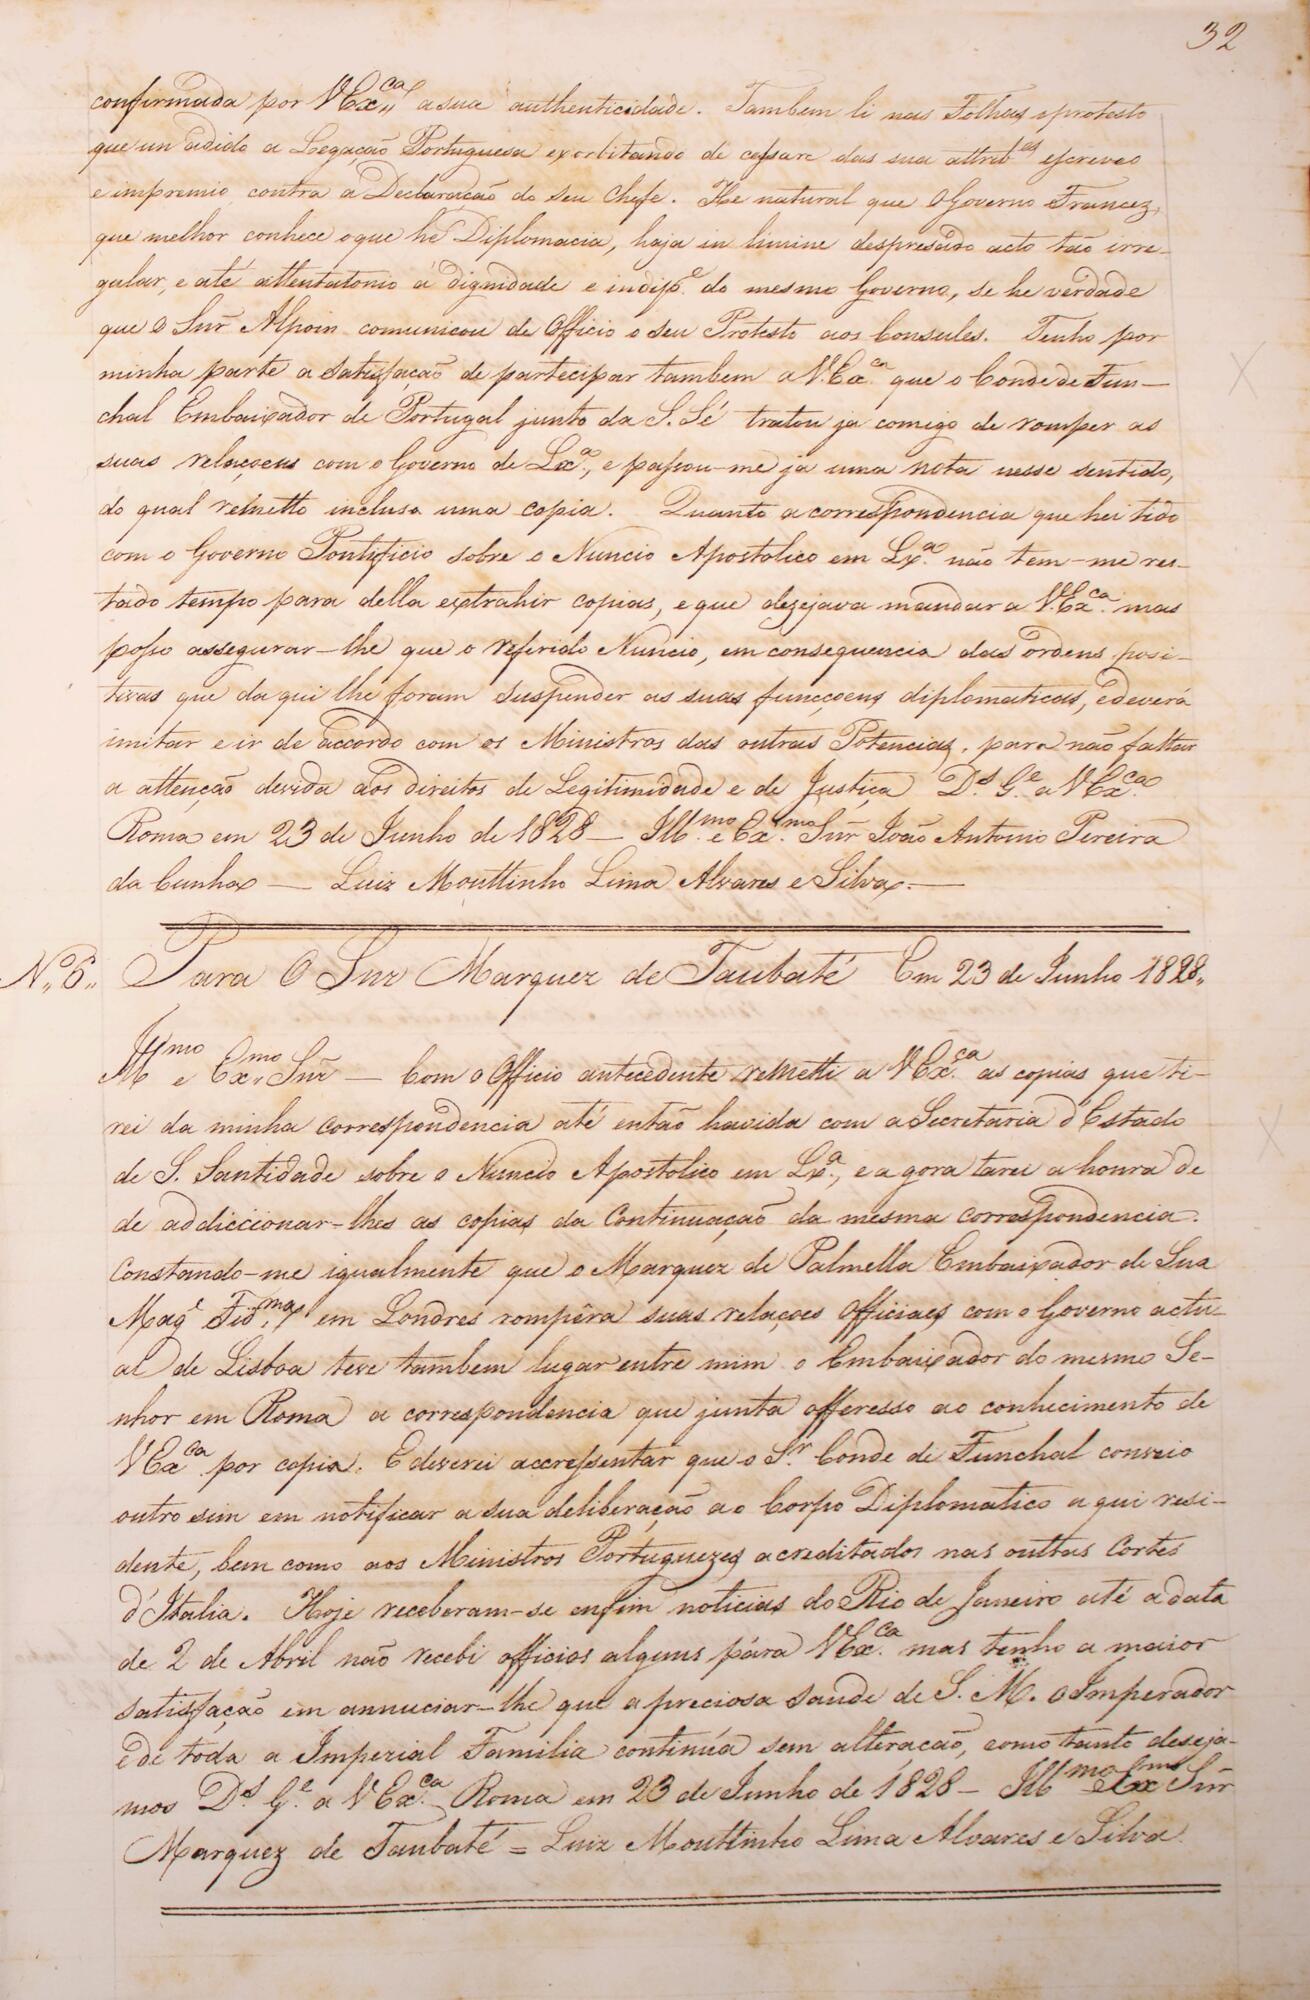 32
confirmada por V Ex.ca a sua authenticidade. Tambem li nas Folhas o protesto
que un adido a Legação Portuguesa exorbitando de cessare das sua attrib.es escreveo
e impremio contra a Declaração do seu Chefe. He natural que o Governo Francez,
que melhor conhece o que he Diplomacia, haja in limine despresado acto tão irre-
gular, e até attentatorio á dignidade e indip.e do mesmo Governo, se he verdade
que o Snr Alpoin comunicou de Officio o seu Protesto aos Consules. Tenho por
minha parte a satisfação de partecipar tambem a V.Ex.ca que o Conde de Fun-
chal Embaixador de Portugal junto da S. Sé tratou ja comigo de romper as
suas relaçoens com o Governo de Lx.a, e passou-me ja uma nota nesse sentido,
do qual remetto inclusa uma copia. Quanto a correspondencia que hei tido
com o Governo Pontificio sobre o Nuncio Apostolico em Lx.a não tem-me res-
tado tempo para della extrahir copias, e que dezejava mandar a V.Ex.ca mas
posso assegurar-lhe que o referido Nuncio, em consequencia das ordens posi-
tivas que da qui lhe foram suspender as suas funcçoens diplomaticas, e deverá
imitar e ir de accordo com os Ministros das outras Potencias, para não faltar
a attenção devida aos direitos de Legitimidade e de Justiça D.s G.e a V Ex.ca
Roma em 23 de Junho de 1828 — Ill.mo e Ex.mo Snr João Antonio Pereira
da Cunha — Luiz Mouttinho Lima Alvares e Silva. —
N.o 6. Para O Snr Marquez de Taubaté Em 23 de Junho 1828.
Ill.mo e Ex.mo Snr — Com o Officio antecedente remetti a V Ex.ca as copias que ti-
rei da minha correspondencia até então havida com a Secretaria d'Estado
de S. Santidade sobre o Nuncio Apostolico em Lx.a, e a gora tarei a honra de
de addiccionar-lhes as copias da Continuação da mesma correspondencia.
Constando-me igualmente que o Marquez de Palmella Embaixador de Sua
Mag.e Fid.ma em Londres rompêra suas relaçoes Officiaes com o Governo actu-
al de Lisboa teve tambem lugar entre mim o Embaixador do mesmo Se-
nhor em Roma a correspondencia que junta offeresso ao conhecimento de
V Ex.ca por copia. E deverei accressentar que o S.r Conde de Funchal conveio
outro sim em notificar a sua deliberação a o Corpo Diplomatico a qui resi-
dente, bem como aos Ministros Portuguezes acreditados nas outtas Cortes
d'Italia. Hoje receberam-se enfim noticias do Rio de Janeiro até a data
de 2 de Abril não recebi officios alguns pára V Ex.ca mas tenho a maior
satisfação em annuciar-lhe que a preciosa saude de S. M. o Imperador
e de toda a Imperial Familia continúa sem alteracão, como tanto deseja-
mos D.s G.e a V Ex.ca Roma em 23 de Junho de 1828 — Ill.mo e Ex.mo Snr
Marquez de Taubaté = Luiz Mouttinho Lima Alvares e Silva.